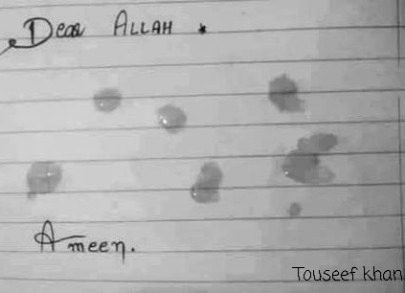 Dear ALLAH
Ameen.
Touseef khan